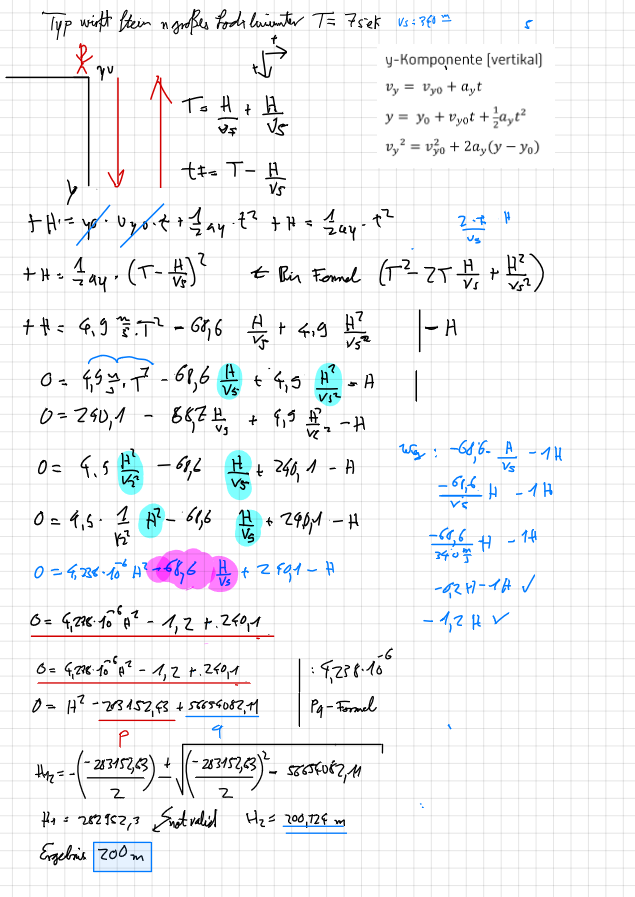 Typ wirft Stein n großes Loch hinunter T = 7sek vs: 340 m/s
y-Komponente (vertikal)
v_y = v_y0 + a_y t
y = y_0 + v_y0 t + 1/2 a_y t²
v_y² = v_y0² + 2a_y(y − y_0)
y0
t
t
T = H/vs + H/vs
y
t = T − H/vs
+H = y0 · vy0 · t + 1/2 ay · t² +H = 1/2 ay · t²
+H = 1/2 ay · (T − H/vs)² ← Bin Formel (T² − 2T H/vs + H²/vs²)
+H = 4,9 m/s · T² − 68,6 H/vs + 4,9 H²/vs² | − H
0 = 4,9 m/s · T² − 68,6 H/vs + 4,9 H²/vs² − H |
0 = 240,1 − 68,7 H/vs + 4,9 H²/vs² − H
0 = 4,9 H²/vs² − 68,6 H/vs + 240,1 − H
0 = 4,9 · 1/vs² H² − 68,6 H/vs + 240,1 − H
0 = 4,238·10^-6 H² − 68,6 H/vs + 240,1 − H
−68,6 · H/vs − 1H
−68,6/vs H − 1H
−68,6/340 m/s H − 1H
−0,2H − 1H ✓
−1,2 H ✓
0 = 4,238·10^-6 H² − 1,2 + 240,1
0 = 4,238·10^-6 H² − 1,2 + 240,1 | : 4,238·10^-6
0 = H² − 283152,43 + 56654082,11 | Pq-Formel
p q
H1,2 = −(−283152,63/2) ± √((−283152,63/2)² − 56654082,11)
H1 = 282952,3 ↙ not valid H2 = 200,124 m
Ergebnis 200m